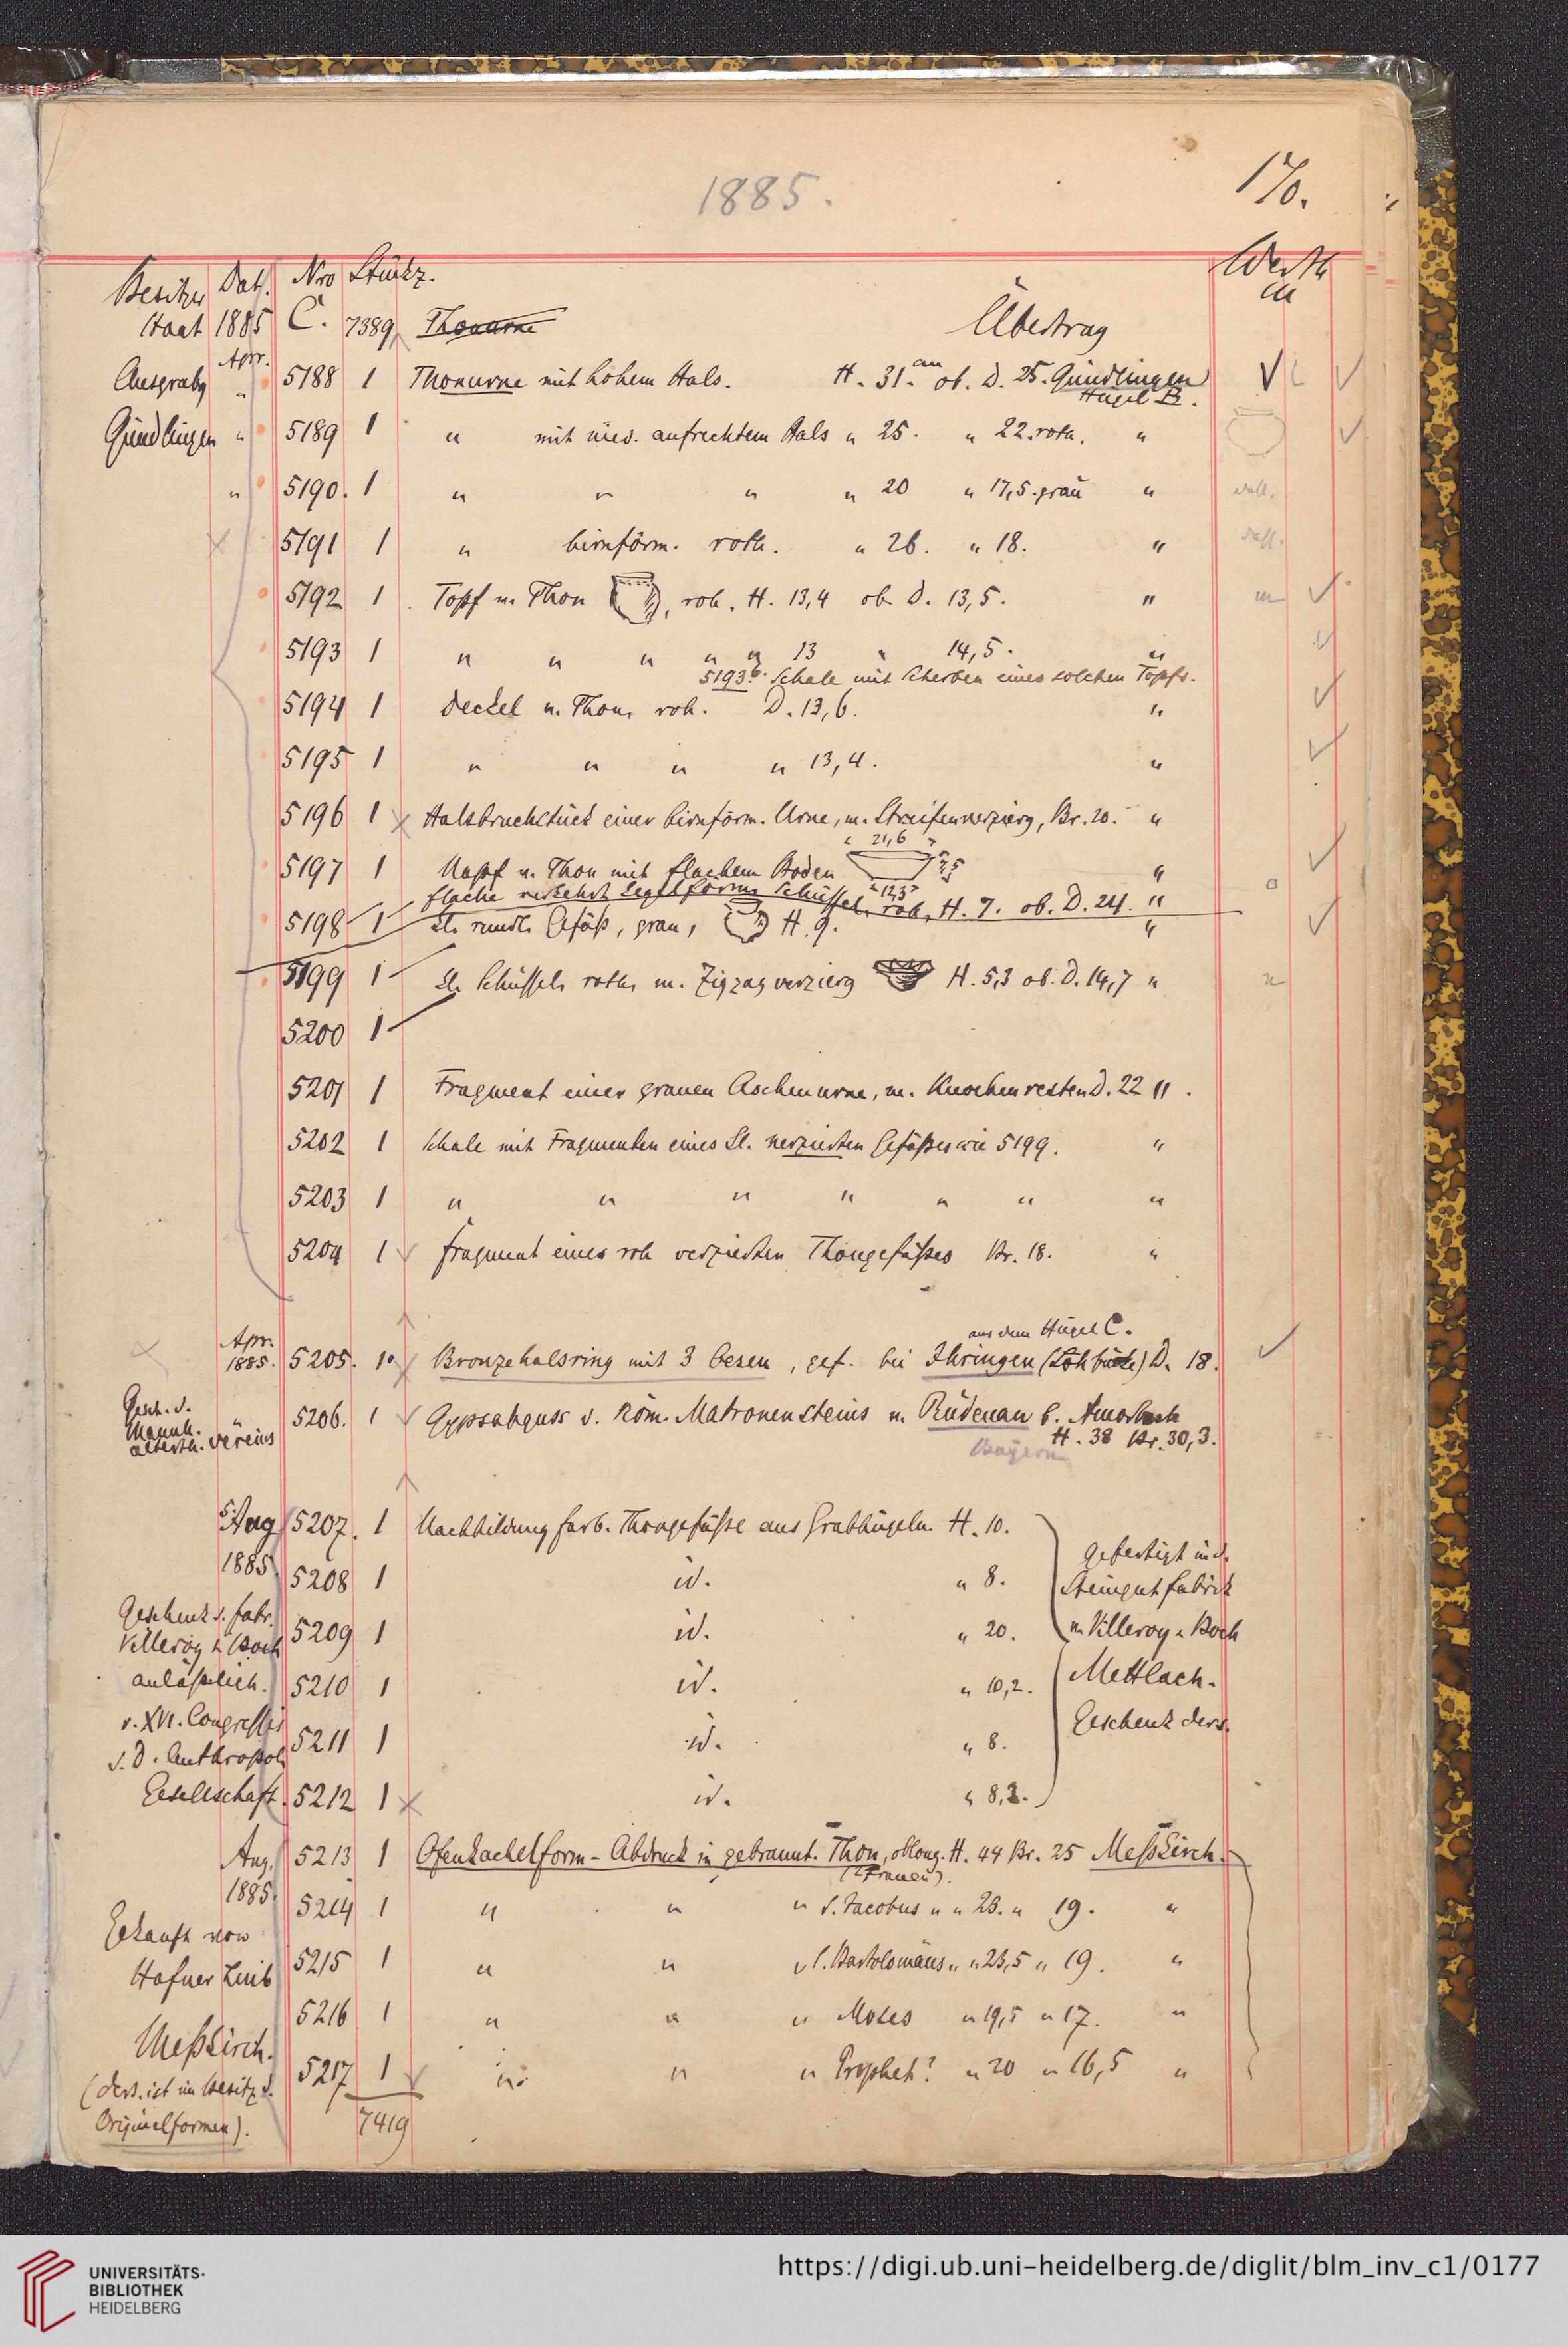 1885.
170.
Besitzer Dat. Nro Stückz. Werth
Staat 1885 C. 7389 Thonurne Übertrag
M
Ausgrabg Apr. 5188 1 Thonurne mit hohem Hals. H. 31. cm ob. D. 25. Gündlingen
Hügel B.
Gündlingen " 5189 1 " mit nied. aufrechtem Hals " 25. " 22. roth. "
" 5190. 1 " " " " 20 " 17,5. grau "
5191 1 " birnförm. roth. " 26. " 18. "
5192 1 Topf v. Thon , roh. H. 13,4 ob. D. 13,5. "
5193 1 " " " " " 13 " 14,5. "
5193b. Schale mit Scherben eines solchen Topfs.
5194 1 Deckel v. Thon, roh. D. 13,6. "
5195 1 " " " " 13,4. "
5196 1 Halsbruchstück einer birnförm. Urne, m. Streifenverzierg, Br. 20. "
21,6
5197 1 Napf v. Thon mit flachem Boden 7,5 "
12,3
flache verkehrt kegelförm. Schüssel, roh, H. 7. ob. D. 24. "
5198 1 kl. rundl. Gefäß, grau, H. 9. "
5199 1 kl. Schüssel, roth, m. Zigzagverzierg H. 5,3 ob. D. 14,7 "
5200 1
5201 1 Fragment einer grauen Aschenurne, m. Knochenresten D. 22 " .
5202 1 Schale mit Fragmenten eines kl. verzierten Gefäßes wie 5199. "
5203 1 " " " " " " "
5204 1 Fragment eines roh verzierten Thongefäßes Br. 18. "
aus dem Hügel C.
Apr. 1885. 5205. 1 Bronzehalsring mit 3 Oesen, gef. bei Ihringen (Lohbücke) D. 18.
Gesch. d. Mannh. alterth. vereins 5206. 1 Gypsabguss d. röm. Matronensteins v. Rüdenau b. Amorbach
H. 38 Br. 30,3.
Bayern
5. Aug 5207. 1 Nachbildung farb. Thongefäße aus Grabhügeln H. 10.
1885 5208 1 id. " 8.
gefertigt in d.
Steingutfabrik
Geschenk d. Fabr.
Villeroy & Boch 5209 1 id. " 20. v. Villeroy & Boch
anläßlich. 5210 1 id. " 10,2. Mettlach.
d. XVI. Congresses 5211 1 id. " 8. Geschenk ders.
d. D. Anthropol.
Gesellschaft. 5212 1 id. " 8,2.
Aug. 5213 1 Ofenkachelform-Abdruck in gebrannt. Thon, oblong. H. 44 Br. 25 Meßkirch.
(2 Frauen).
1885. 5214 1 " " " S. Jacobus " " 23. " 19. "
Gekauft von
Hafner Leib 5215 1 " " " S. Bartolomäus " " 23,5 " 19. "
5216 1 " " " Moses " 19,5 " 17. "
Meßkirch. 5217 1 " " " Prophet? " 20 " 16,5 "
(ders. ist im Besitz d.
Originalformen). 7419
UNIVERSITÄTS-
BIBLIOTHEK
HEIDELBERG
https://digi.ub.uni-heidelberg.de/diglit/blm_inv_c1/0177